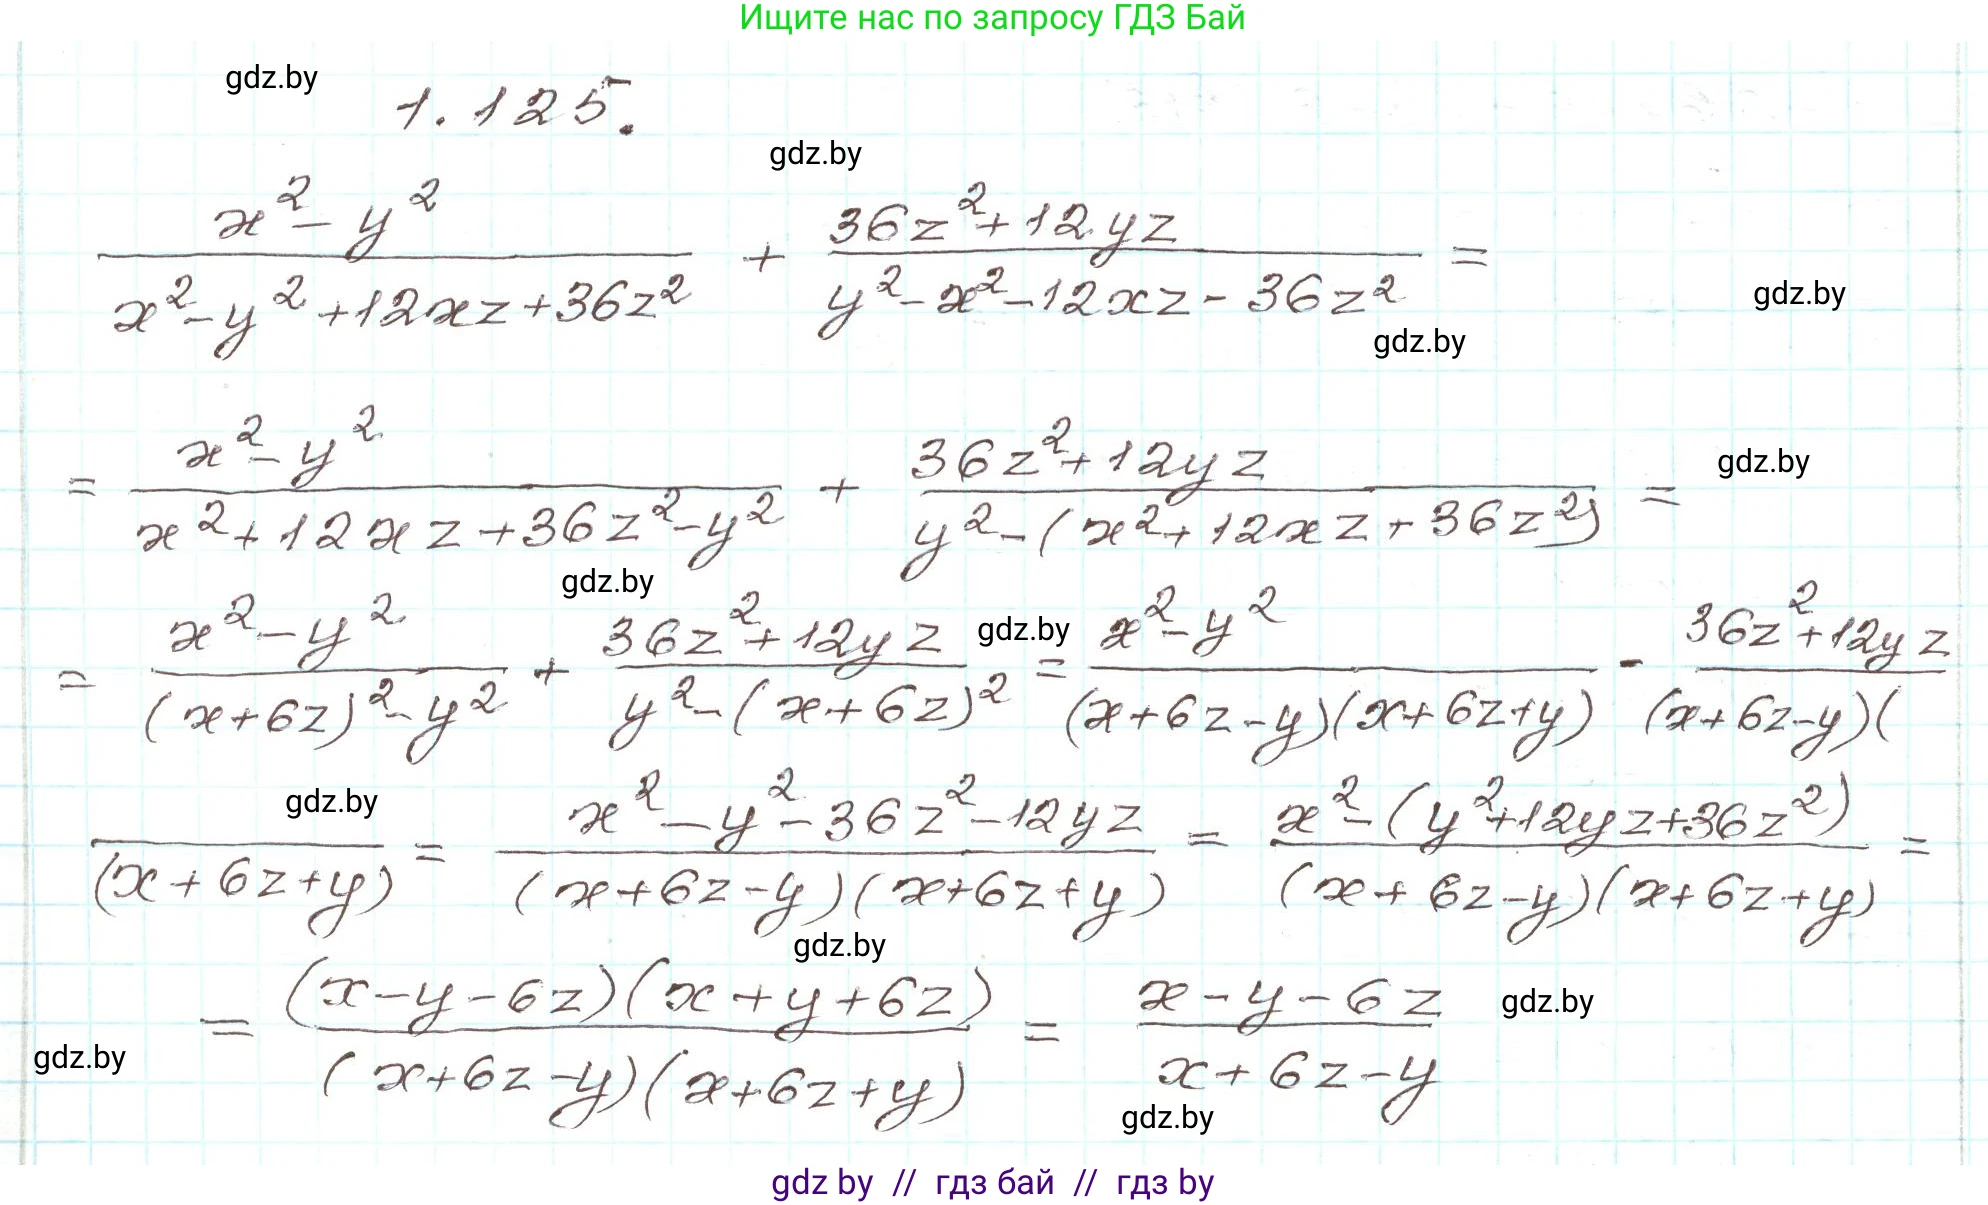 Ищите нас по запросу ГДЗ Бай
gdz.by
1.125.
gdz.by
x² - y² / x² - y² + 12xz + 36z² + 36z² + 12yz / y² - x² - 12xz - 36z² =
gdz.by
gdz.by
= x² - y² / x² + 12xz + 36z² - y² + 36z² + 12yz / y² - (x² + 12xz + 36z²) =
gdz.by
gdz.by
= x² - y² / (x + 6z)² - y² + 36z² + 12yz / y² - (x + 6z)² = x² - y² / (x + 6z - y)(x + 6z + y) - 36z² + 12yz / (x + 6z - y)(
gdz.by
gdz.by
/ (x + 6z + y) = x² - y² - 36z² - 12yz / (x + 6z - y)(x + 6z + y) = x² - (y² + 12yz + 36z²) / (x + 6z - y)(x + 6z + y) =
gdz.by
= (x - y - 6z)(x + y + 6z) / (x + 6z - y)(x + 6z + y) = x - y - 6z / x + 6z - y
gdz.by
gdz.by
gdz.by
gdz by // гдз бай // гдз by